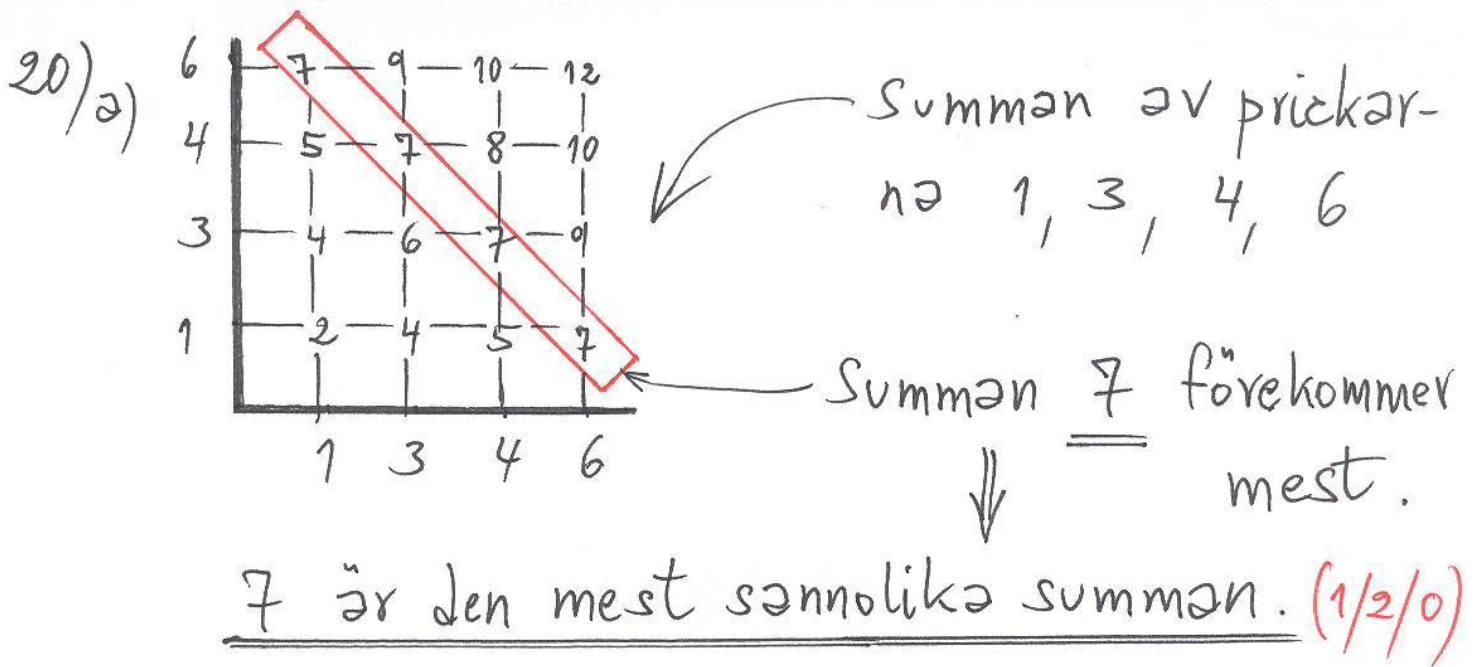 20) a)
6 7 9 10 12
4 5 7 8 10
3 4 6 7 9
1 2 4 5 7
1 3 4 6
Summan av prickar-
na 1, 3, 4, 6
Summan 7 förekommer
mest.
7 är den mest sannolika summan. (1/2/0)